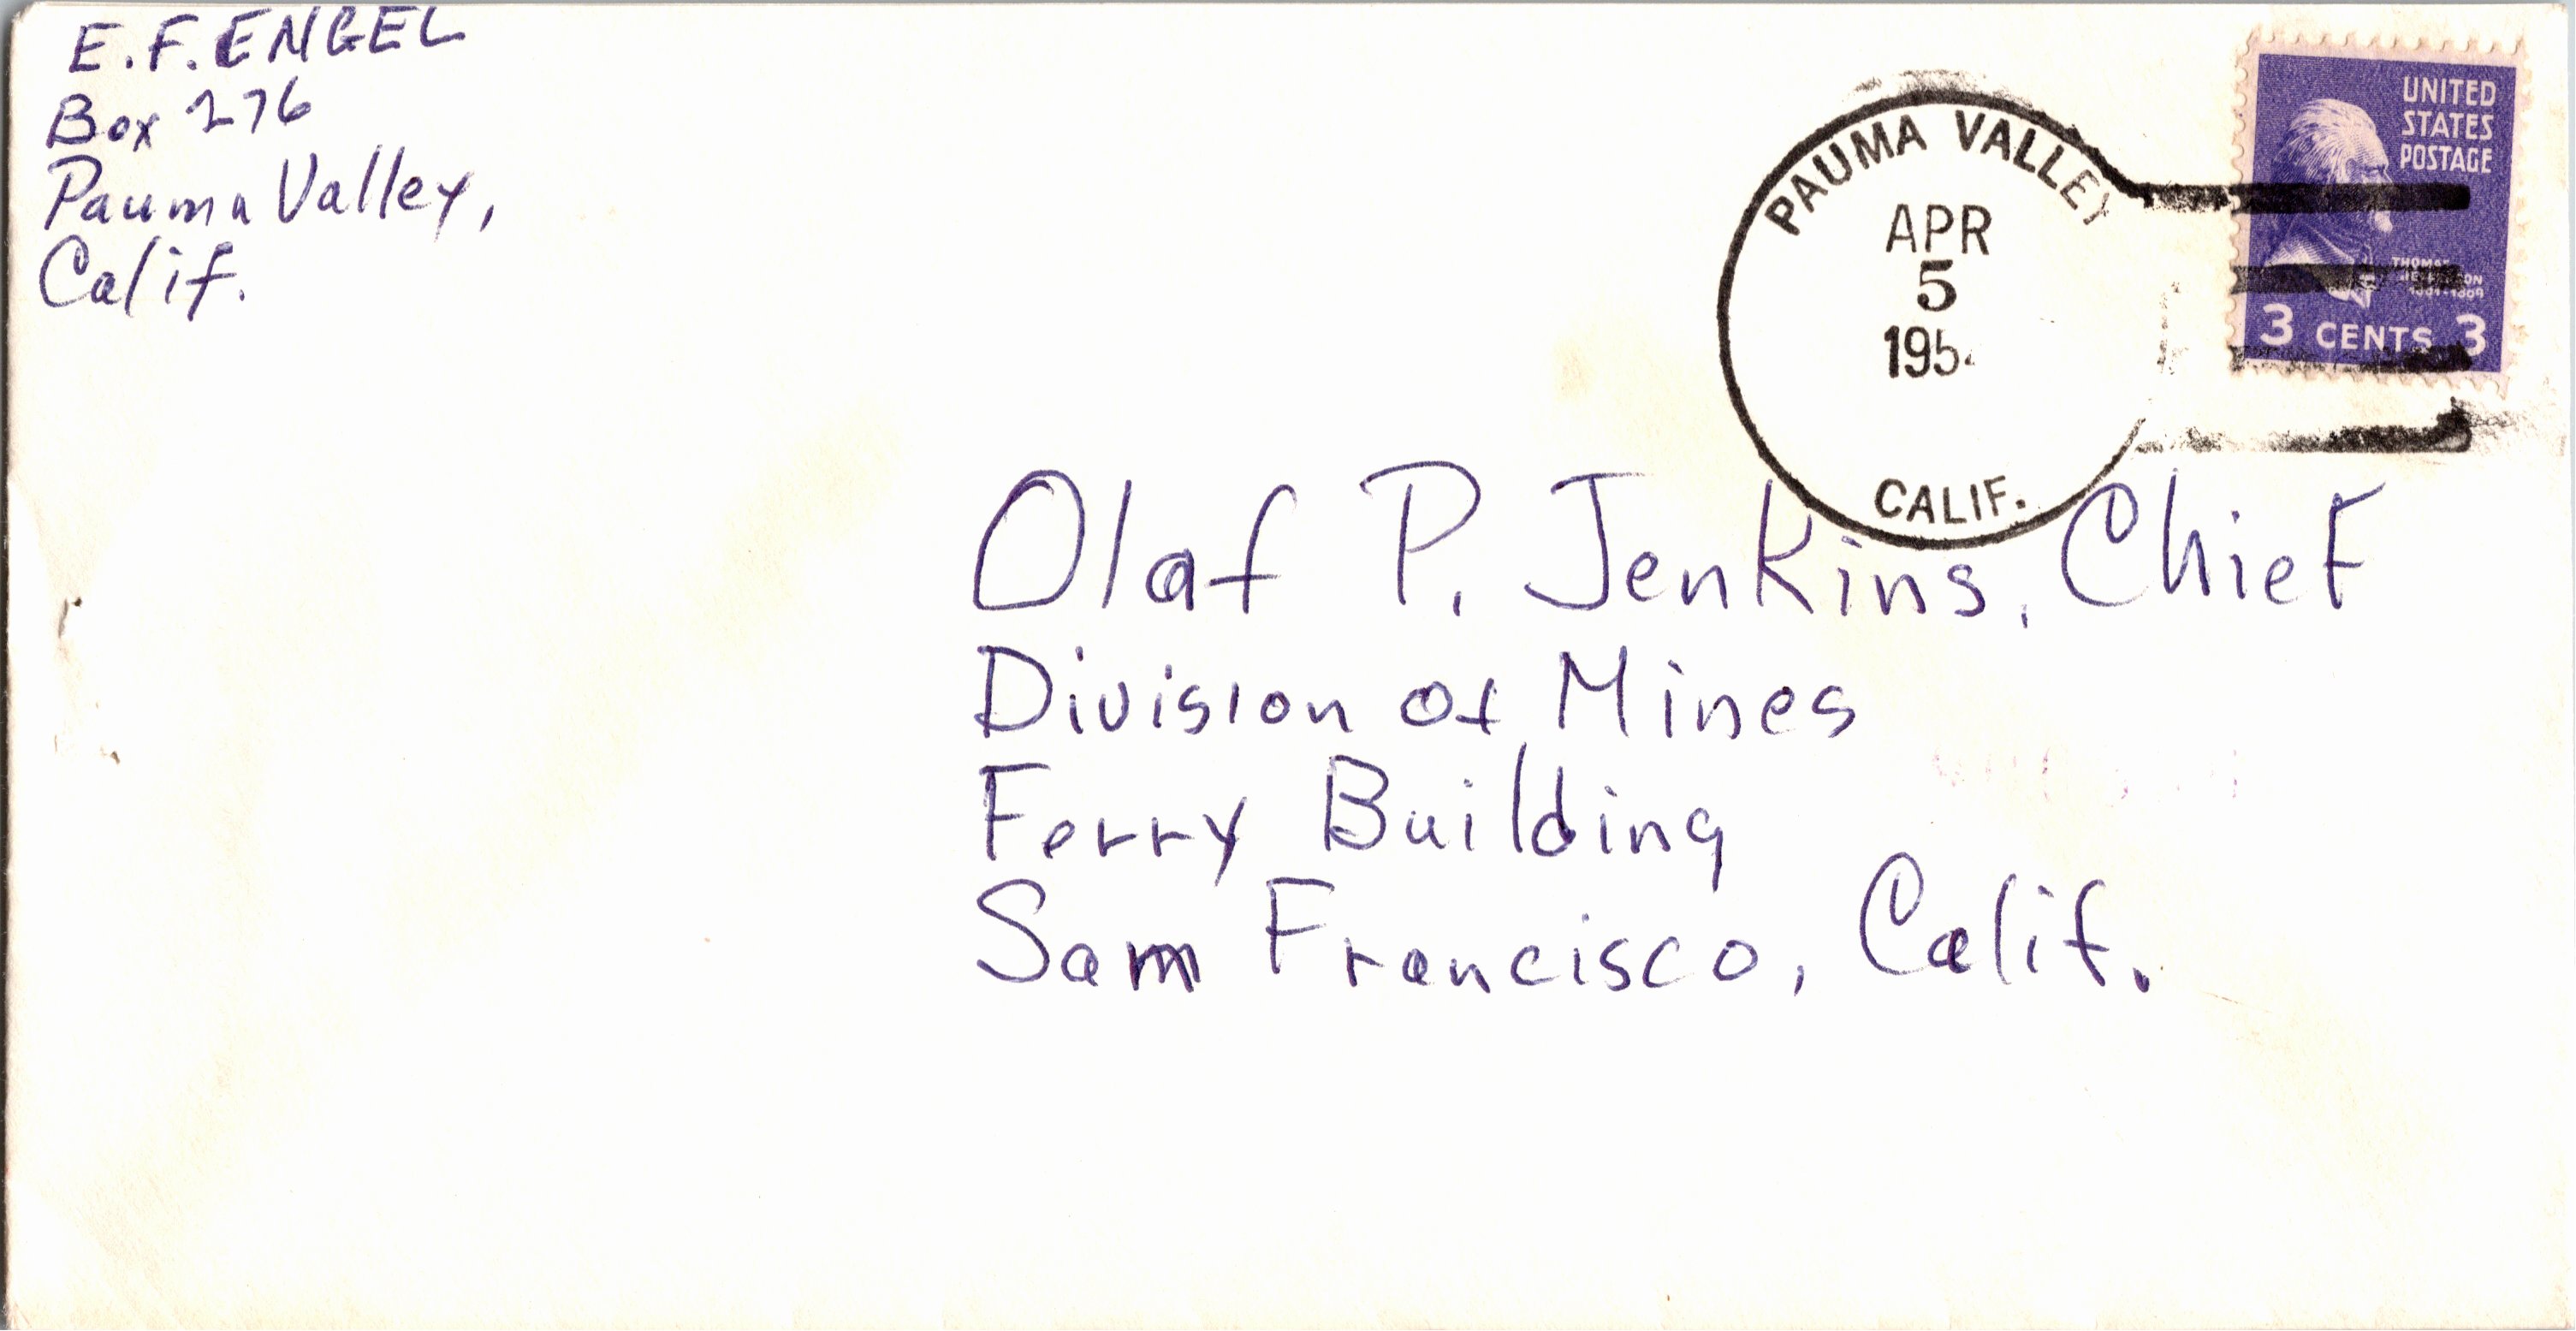 E.F. ENGEL
Box 276
Pauma Valley,
Calif.
PAUMA VALLEY
APR
5
CALIF.
UNITED
STATES
POSTAGE
3 CENTS 3
Olaf P. Jenkins, Chief
Division of Mines
Ferry Building
Sam Francisco, Calif.